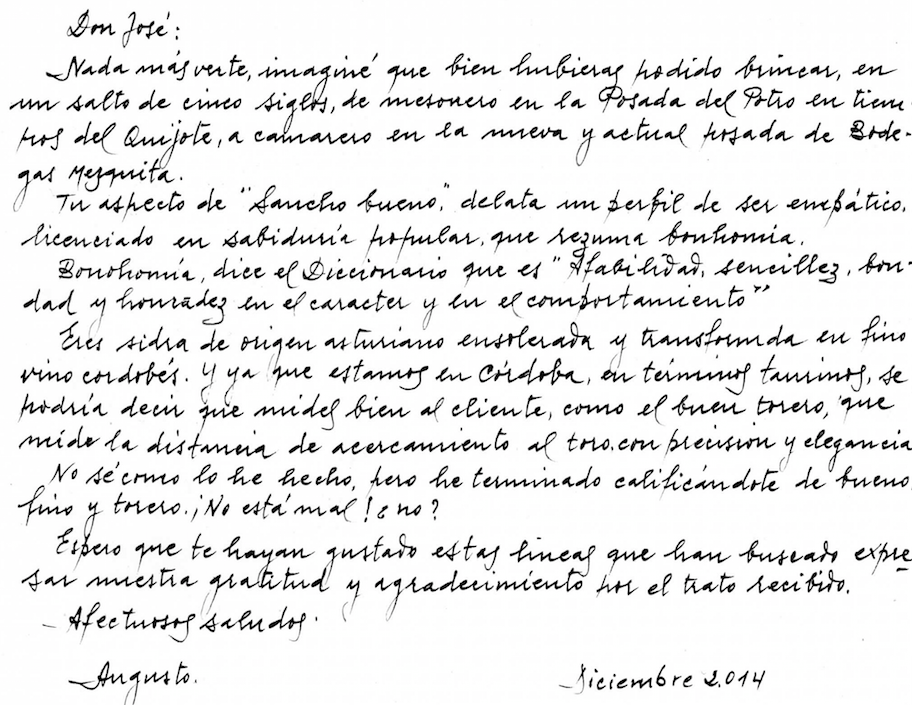 Don José:
Nada más verte, imaginé que bien hubieras podido brincar, en
un salto de cinco siglos, de mesonero en la Posada del Potro en tiem-
pos del Quijote, a camarero en la nueva y actual posada de Bode-
gas Mezquita.
Tu aspecto de "Sancho bueno", delata un perfil de ser empático,
licenciado en sabiduría popular, que rezuma bonhomía.
Bonohomía, dice el Diccionario que es "Afabilidad, sencillez, bon-
dad y honradez en el caracter y en el comportamiento"
Eres sidra de origen asturiano ensolerada y transformda en fino
vino cordobés. Y ya que estamos en Córdoba, en términos taurinos, se
podría decir que mides bien al cliente, como el buen torero, que
mide la distancia de acercamiento al toro. con precisión y elegancia
No sé como lo he hecho, pero he terminado calificándote de bueno,
fino y torero. ¡No está mal! ¿no?
Espero que te hayan gustado estas lineas que han buscado expre
sar nuestra gratitud y agradecimiento por el trato recibido.
- Afectuosos saludos.
Augusto.
Diciembre 2.014